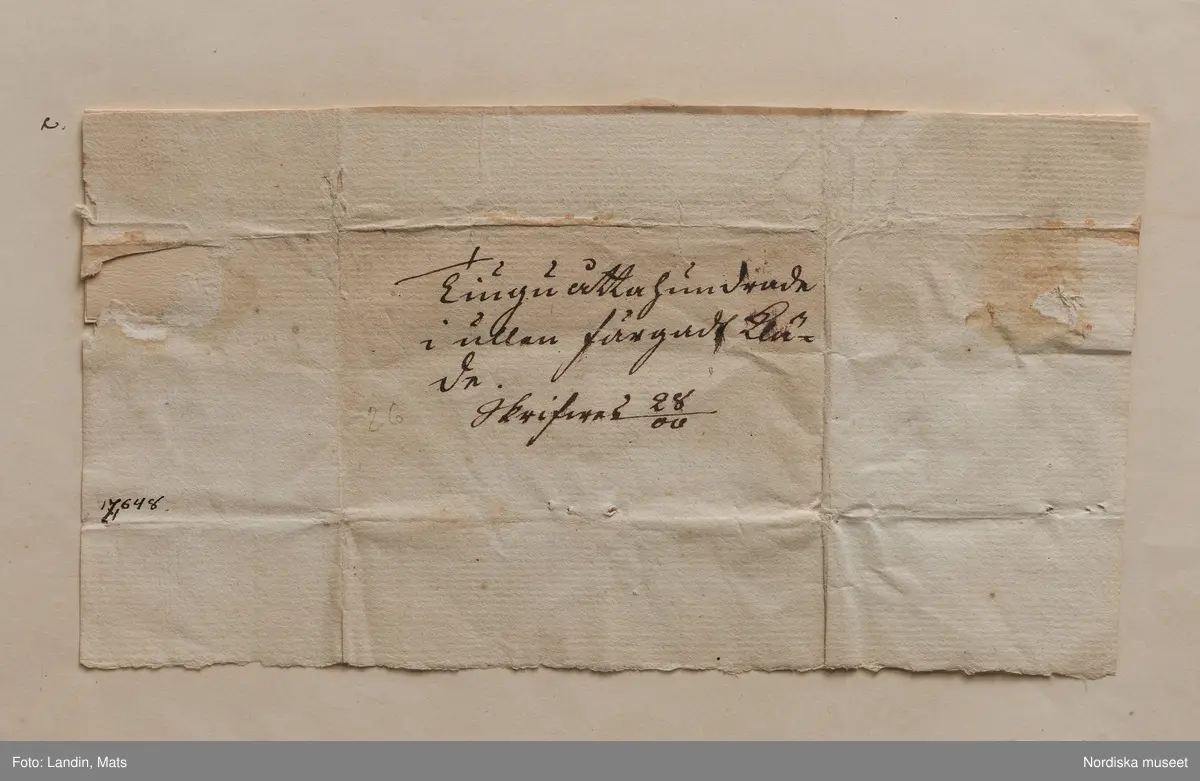 2.
Tiugu åtta hundrade
i ullen färgadt Klä-
de.
Skrifwes 28
00
26
17,648.
Foto: Landin, Mats
Nordiska museet